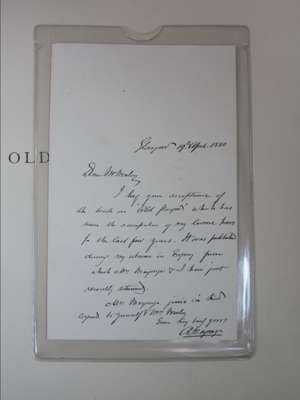 OLD
Glasgow 19th April 1880
Dear Mr
I beg your acceptance of
the book on Old Glasgow which has
been the occupation of my leisure hours
for the last few years. It was published
during my absence in Egypt from
which Mrs & I have just
recently returned
Mrs joins in kind
regards to yourself & Mrs